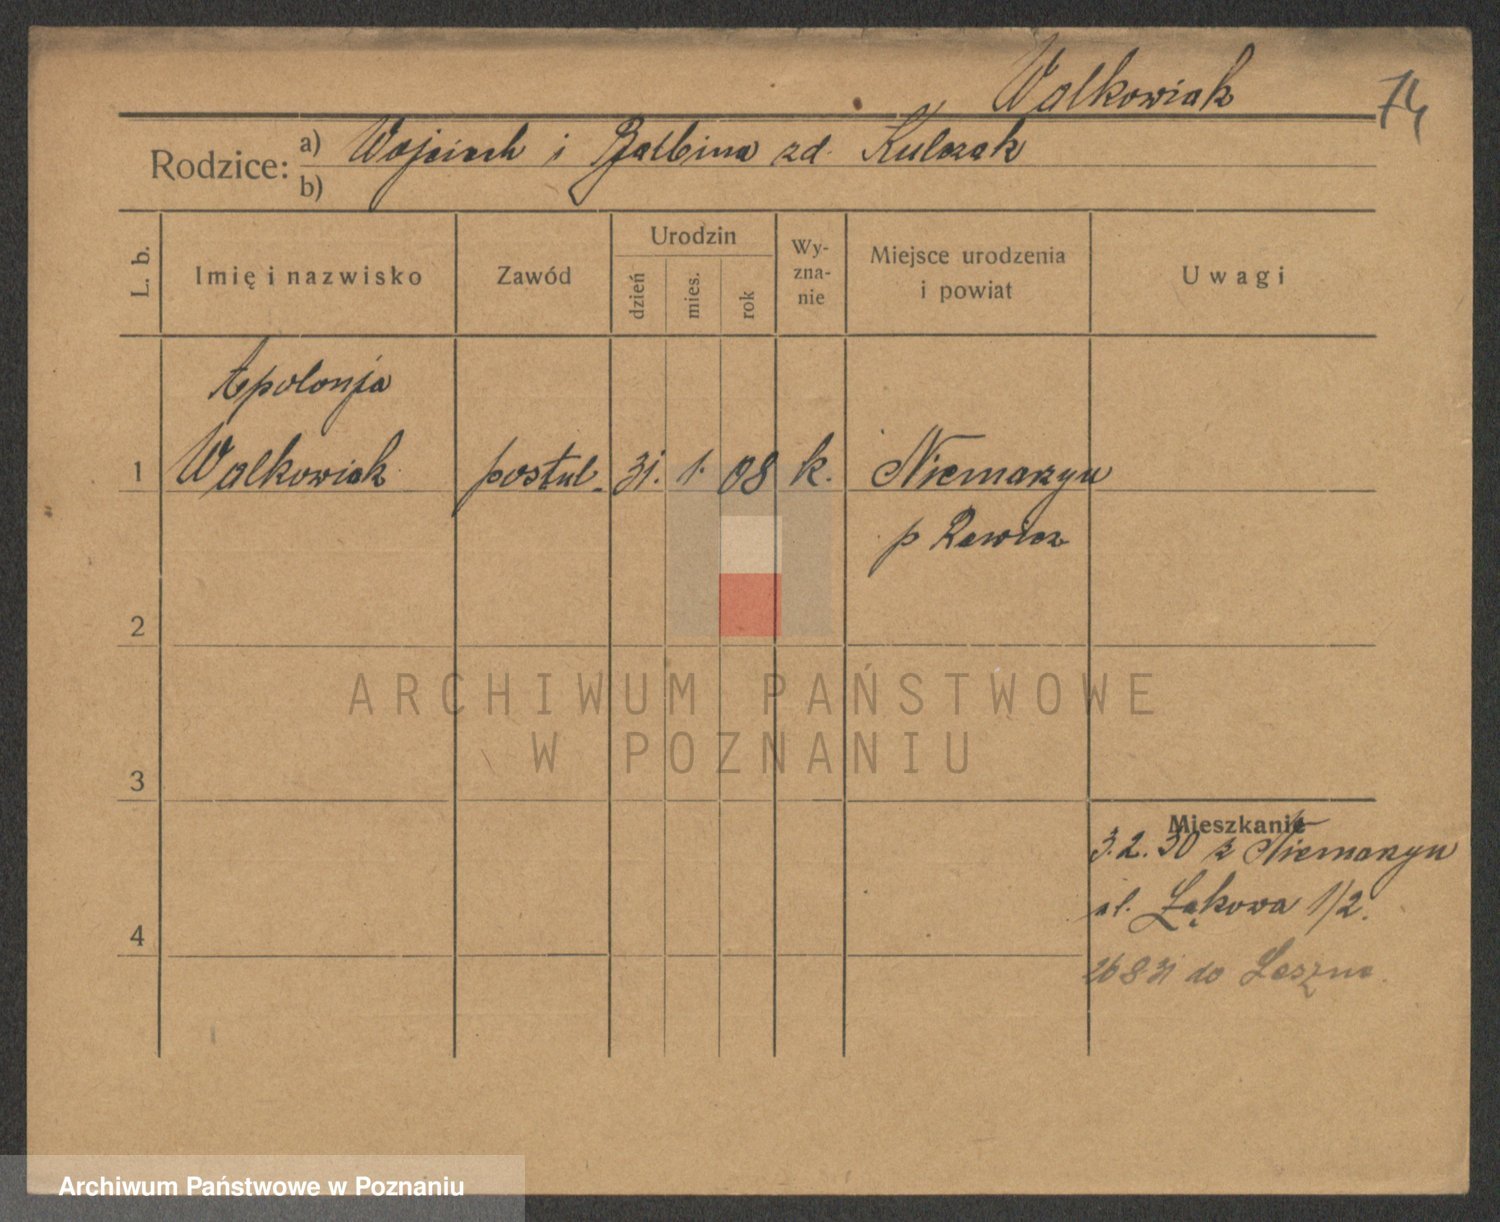 Walkowiak
74
Rodzice: a) Wojciech i Balbina zd. Kulczak
b)
L. b.
Imię i nazwisko
Zawód
Urodzin
dzień
mies.
rok
Wy-
zna-
nie
Miejsce urodzenia
i powiat
Uwagi
Apolonja
1 Walkowiak postul. 31. 1. 08 k. Niemarzyn
p Rawicz
2
3
Mieszkanie
3.2.30 z Niemarzyn
ul. Łąkowa 1/2.
4
26 8 31 do Leszna.
ARCHIWUM PAŃSTWOWE
W POZNANIU
Archiwum Państwowe w Poznaniu